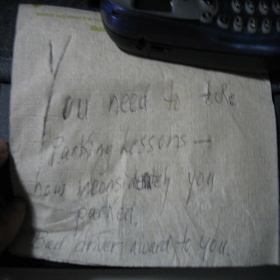 You need to take
Parking Lessons →
how inconsiderately you
parked.
Bad driver award to you.